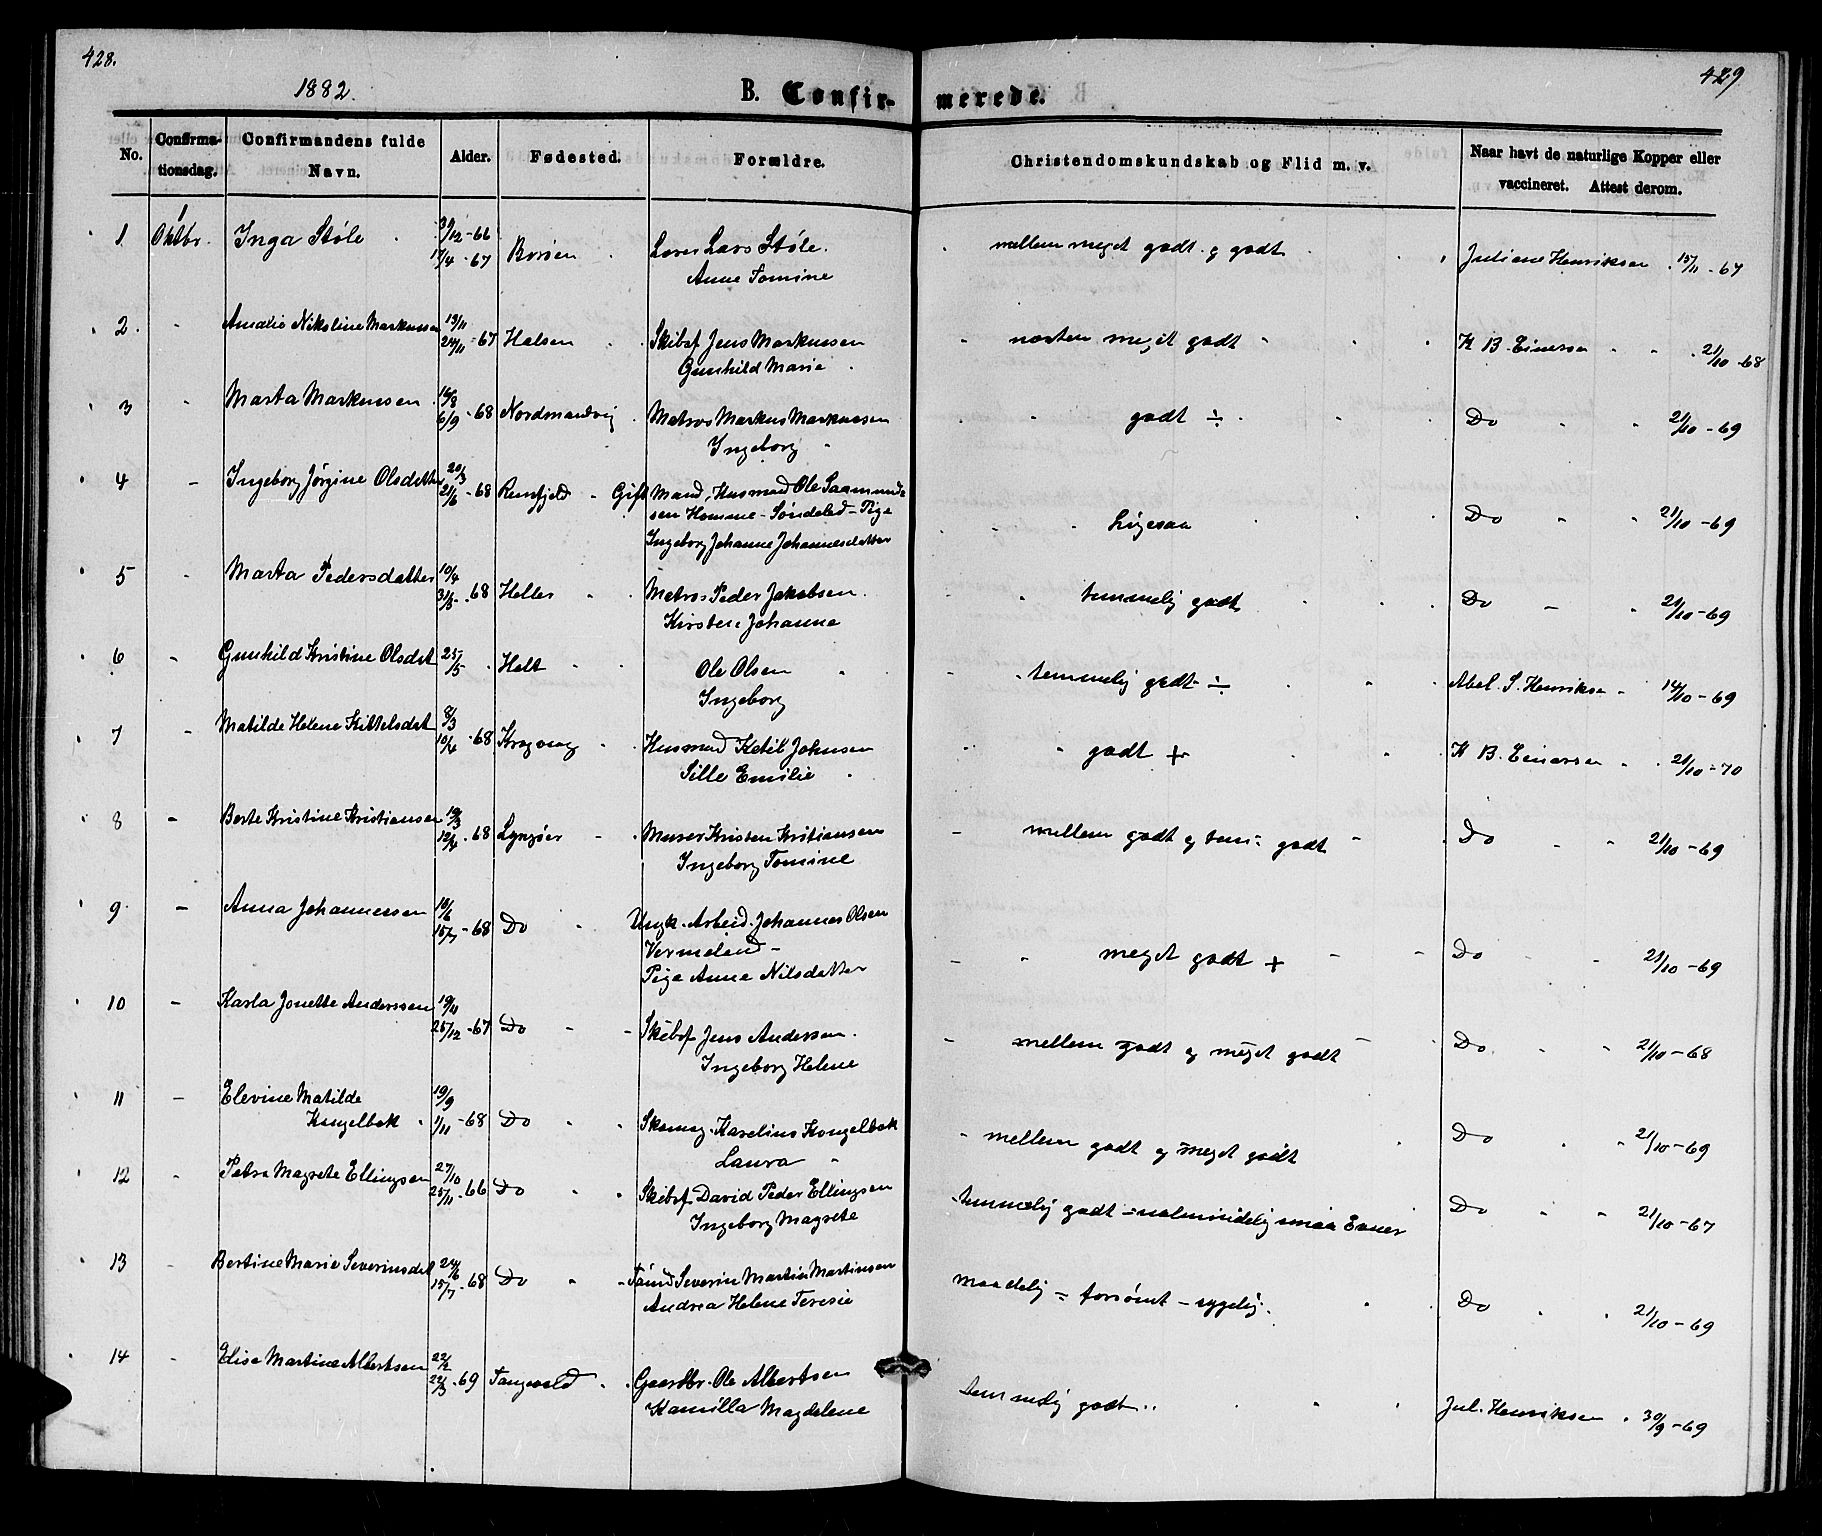 428.
429
1882.
B. Confir- merede.
No. Confirma-tionsdag. Confirmandens fulde Navn. Alder. Fødested. Forældre. Christendomskundskab og Flid m. v. Naar havt de naturlige Kopper eller vaccineret. Attest derom.
1 1 Oktbr. Inga Støle 31/12-66 17/4-67 Borøen Lars Støle. mellem meget godt og godt Juliane Henriksen 15/11-67
Anne Tomine
2. - Amalie Nikoline Markussen 13/11 24/11-67 Halsen Skibsf Jens Markussen næsten meget godt K B. Einersen 21/10-68
Gunhild Marie
3 - Marta Markussen 16/8 6/9-68 Nordmandvig Matros Markus Markussen godt ÷ Do 21/10-69
Ingeborg
4 - Ingeborg Jørgine Olsdatter 20/3 21/6-68 Remfjeld - Gift Mand, Husmand Ole Saamund=
sen Homme - Søndeled - Pige
Ingeborg Johanne Johannesdatter Ligesaa Do 21/10-69
5 - Marta Pedersdatter 10/4 31/5-68 Helle Matros Peder Jakobsen temmelig godt Do - 21/10-69
Kirstene Johanna
6 - Gunhild Kristine Olsdat 25/5 Holt Ole Olsen temmelig godt ÷ Abel. S. Henriksen 14/10-69
Ingeborg
7 - Matilde Helene Kittelsdat 8/3 10/4-68 Kragvaag Husmand Ketil Johnsen godt + K B. Einersen 21/10-70
Sille Emilie
8 - Berte Kristine Kristiansen 19/3 12/4-68 Lyngør Murer Kristen Kristiansen mellem godt og tem: godt Do 21/10-69
Ingeborg Tomine
9 - Anna Johannessen 10/6 15/7-68 Do Ungk. Arbeid. Johannes Olsen
Vermeland - meget godt + Do 21/10-69
Pige Anna Nilsdatter
10 - Karla Jonette Anderssen 19/11 25/12-67 Do - Skibsf Jens Andersen. mellem godt og meget godt Do 21/10-68
Ingeborg Helene
11 - Elevine Matilde 19/9
Kongelbak 1/11-68 Do Skomag. Karelius Kongelbak mellem godt og meget godt Do 21/10-69
Laura
12 - Petra Magrete Ellingsen 27/10 25/11-66 Do Skibsf David Peder Ellingsen temmelig godt - ualmindelig smaa Evner Do 21/10-67
Ingeborg Magrete
13 - Bertine Marie Severinsdat 24/6 15/7-68 Do Tømd Severin Martin Martinsen maadelig = forsømt - sygelig. Do 21/10-69
Andrea Helene Teresie
14 - Elise Martine Albertsen 22/2 22/3-69 Tangvald Gaardbr. Ole Albertsen temmelig godt Jul. Henriksen 30/9-69
Kamilla Magdelene